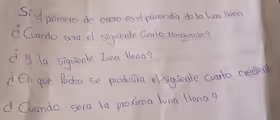 Si el primero de enero es el primer día de la luna llena
¿Cuando sera el siguiente Cuarto Menguante?
¿Y la siguiente Luna llena?
¿En que fecha se producía el siguiente Cuarto creciente
¿Cuando sera la proxima luna llena?